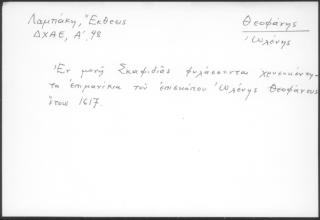 Λαμπάκη, Ἔκθεσις
ΔΧΑΕ, Α΄, 48
Θεοφάνης
Ὠλένης
Ἐν μονῇ Σκαφιδιᾶς φυλάσσονται χρυσοκέντη-
τα ἐπιμανίκια τοῦ ἐπισκόπου Ὠλένης Θεοφάνους
ἔτους 1617.